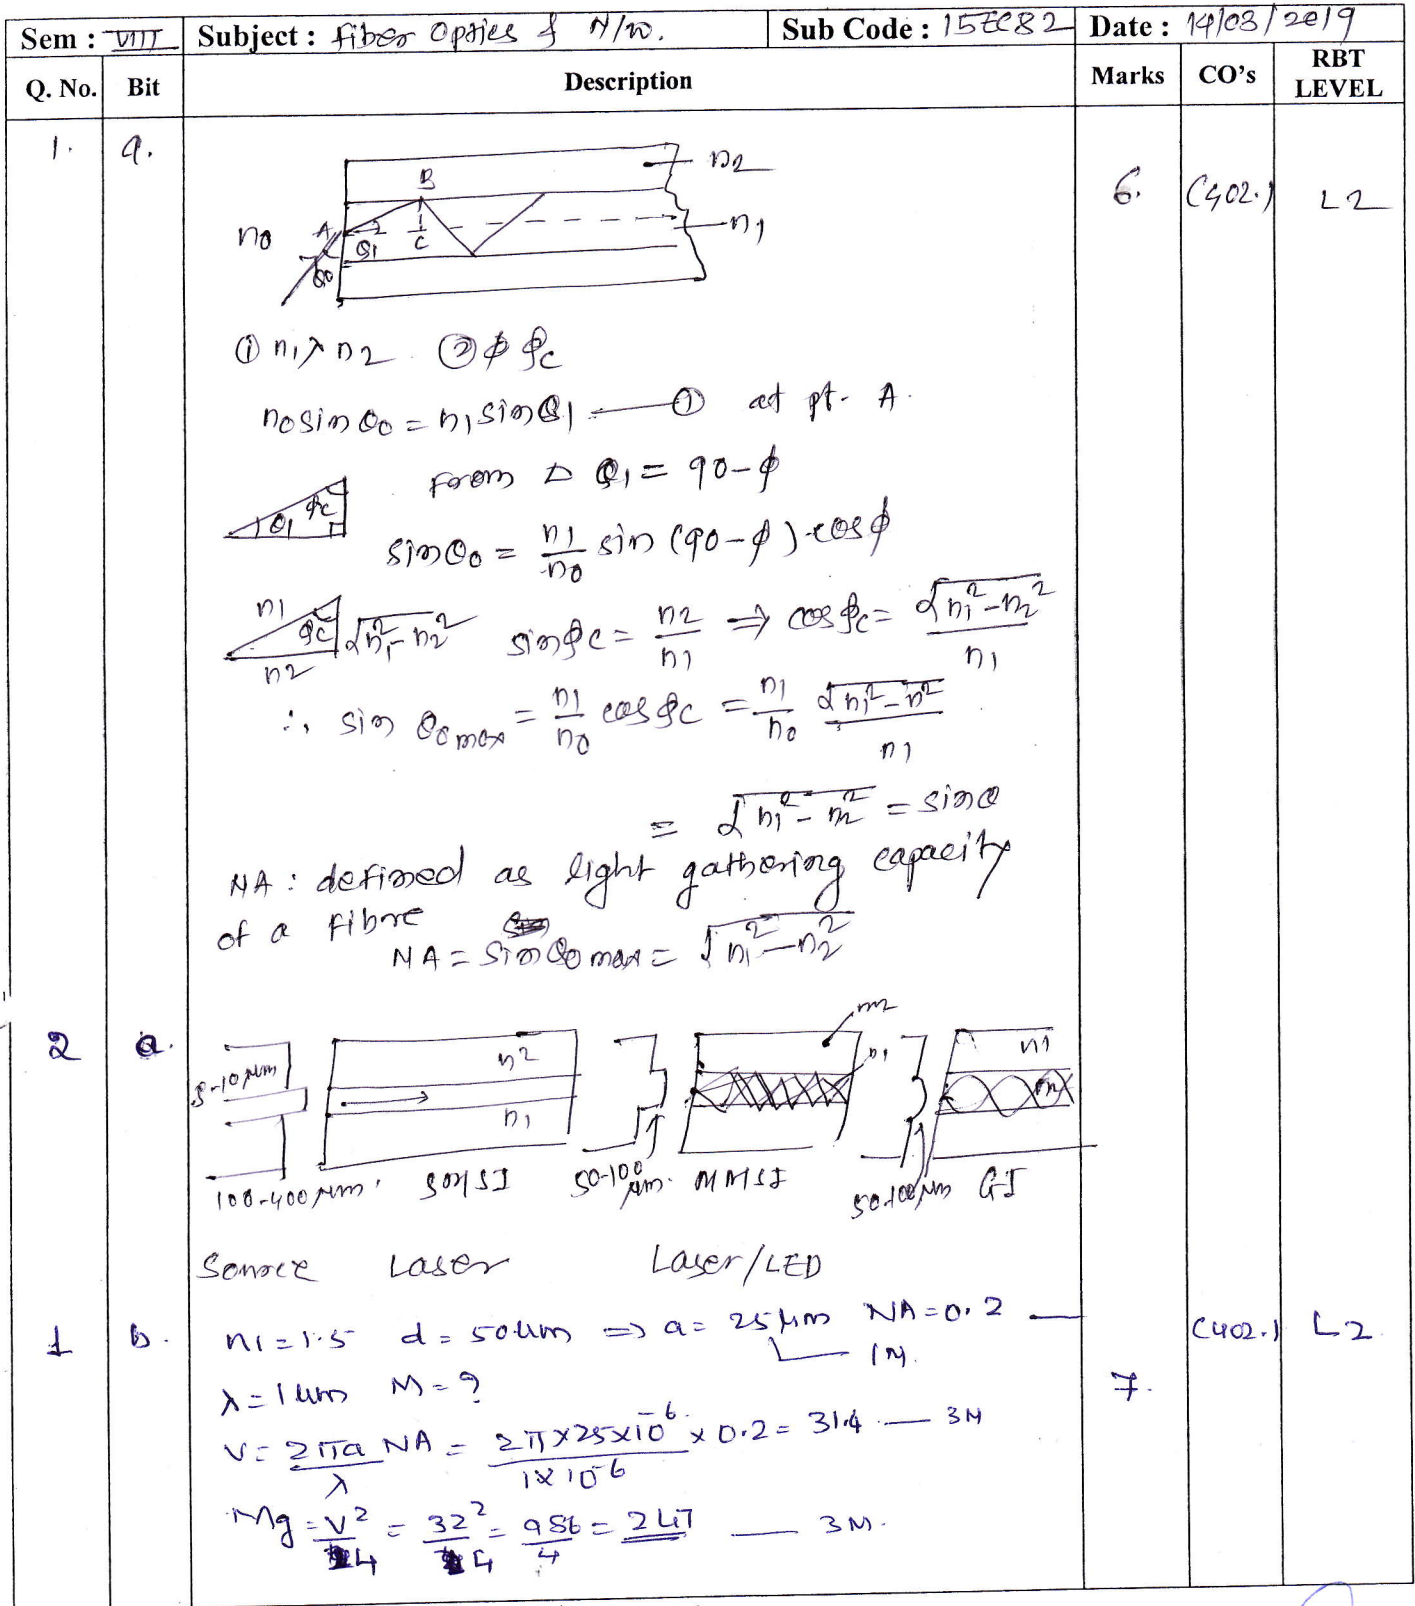 Sem : VIII Subject : Fiber Optics & N/w. Sub Code : 15EC82 Date : 14/03/2019
Q. No. Bit Description Marks CO's RBT LEVEL
1. a. 6. (402.1) L2
n2
B
n0 A θ1 C n1
θ0
① n1 > n2 ② φ φc
n0 sin θ0 = n1 sin θ1 — ① at pt. A.
From Δ θ1 = 90-φ
θ1 φc
sin θ0 = n1/n0 sin (90-φ) cos φ
n1 φc √n1²-n2² n2
sin φc = n2/n1 ⇒ cos φc = √n1²-n2²/n1
∴ sin θ0max = n1/n0 cos φc = n1/n0 √n1²-n²/n1
= √n1²-n2² = sin θ
NA : defined as light gathering capacity
of a Fibre
NA = Sin θ0 max = √n1²-n2²
2 a.
8-10 μm n2 n1 n2 n1 n1
100-400 μm. SMSI 50-100 μm. MMSI 50-100 μm GI
Source Laser Laser/LED
1 b. n1 = 1.5 d = 50um ⇒ a = 25 μm NA = 0.2 — (402.1) L2
1M.
λ = 1 um M = ? 7.
V = 2πa/λ NA = 2π×25×10^-6/1×10^-6 × 0.2 = 31.4 — 3M
Mg = V²/4 = 32²/4 = 986/4 = 247 — 3M.